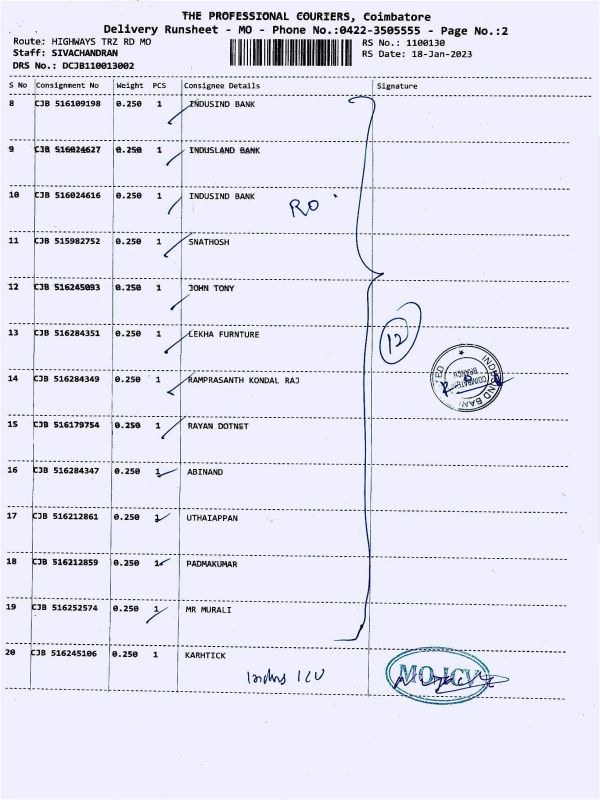 THE PROFESSIONAL COURIERS, Coimbatore
Delivery Runsheet - MO - Phone No.:0422-3505555 - Page No.:2
Route: HIGHWAYS TRZ RD MO
RS No.: 1100130
Staff: SIVACHANDRAN
RS Date: 18-Jan-2023
DRS No.: DCJB110013002
S No Consignment No Weight PCS Consignee Details Signature
8 CJB 516109198 0.250 1 INDUSIND BANK
9 CJB 516024627 0.250 1 INDUSLAND BANK
10 CJB 516024616 0.250 1 INDUSIND BANK
RO
11 CJB 515982752 0.250 1 SNATHOSH
12 CJB 516245093 0.250 1 JOHN TONY
13 CJB 516284351 0.250 1 LEKHA FURNTURE
12
14 CJB 516284349 0.250 1 RAMPRASANTH KONDAL RAJ
15 CJB 516179754 0.250 1 RAYAN DOTNET
16 CJB 516284347 0.250 1 ABINAND
17 CJB 516212861 0.250 1 UTHAIAPPAN
18 CJB 516212859 0.250 1 PADMAKUMAR
19 CJB 516252574 0.250 1 MR MURALI
20 CJB 516245106 0.250 1 KARHTICK